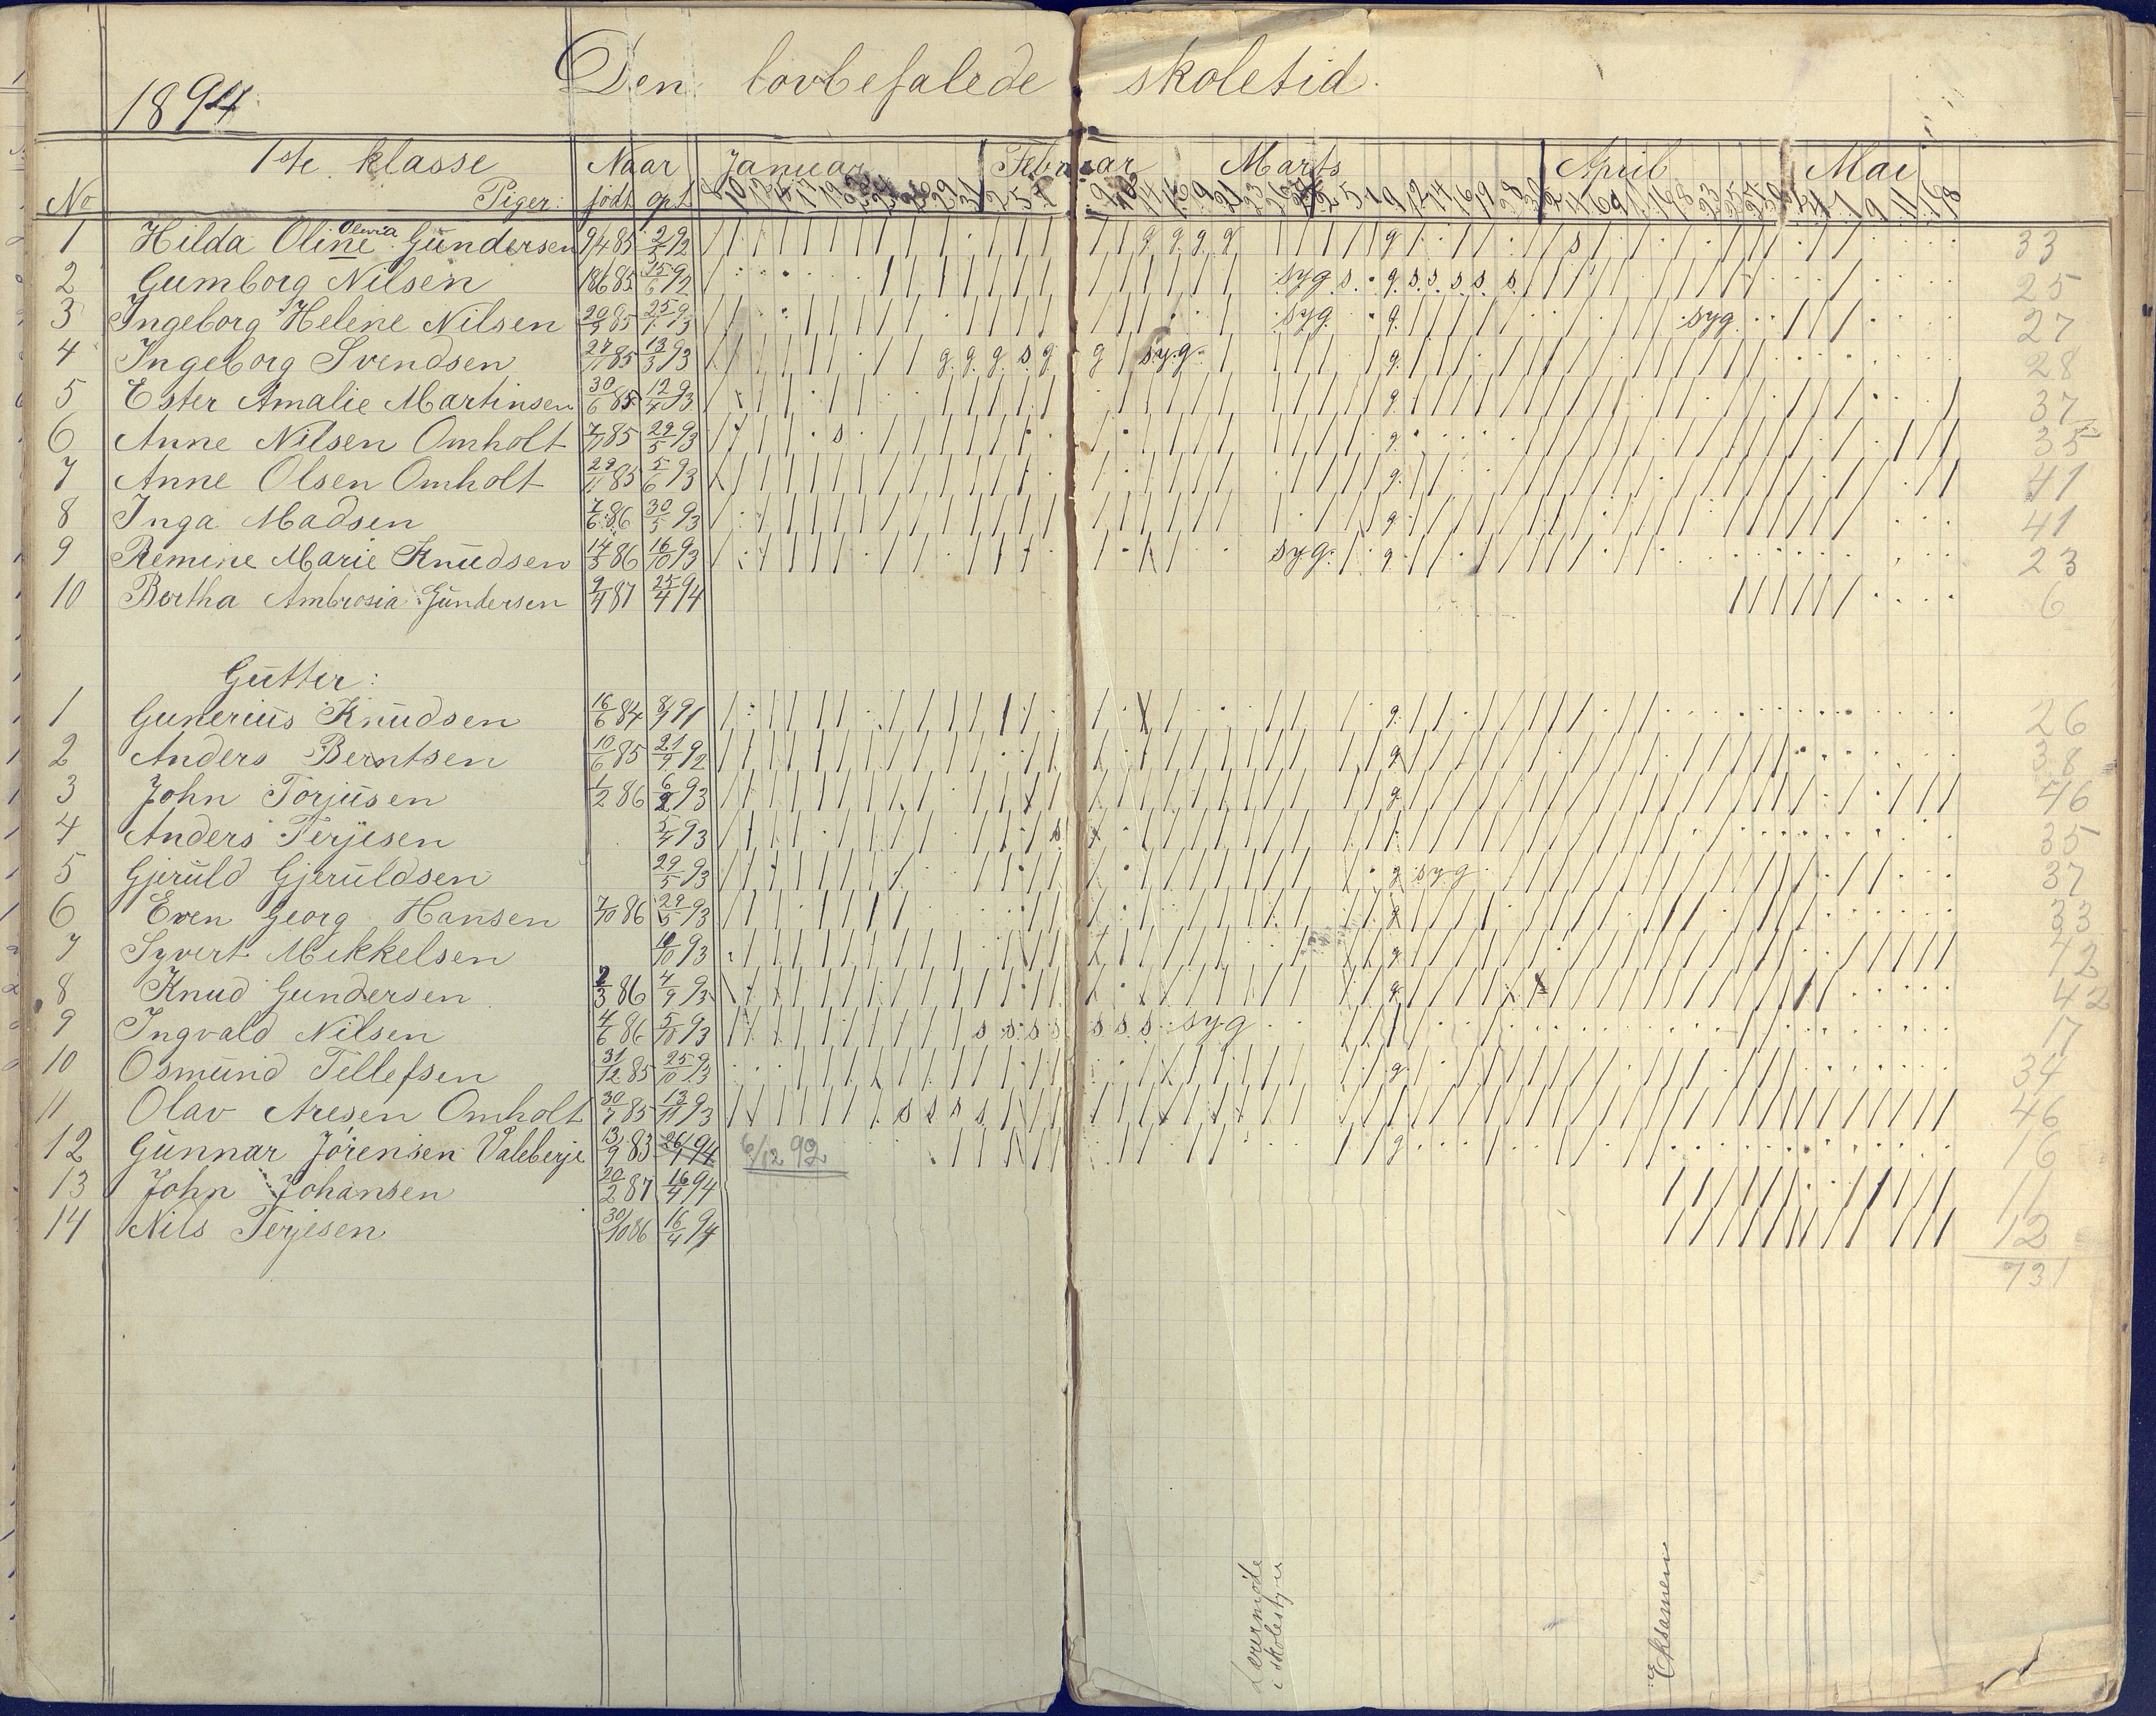 1894
Den lovbefalede skoletid.
1ste klasse Naar Januar Februar Marts April Mai
No Piger: født opt
1 Hilda Oline Olevia Gundersen 9/4 85 2/5 92 33
2 Gumborg Nilsen 18/6 85 15/6 92 syg s. g. s. s. s. s. s. 25
3 Ingeborg Helene Nilsen 20/9 85 25/1 93 syg g. syg. 27
4 Ingeborg Svendsen 27/11 85 13/3 93 g g g s g g syg. g. 28
5 Ester Amalie Martinsen 30/6 85 12/4 93 g. 37
6 Anne Nilsen Omholt 7/11 85 29/5 93 s g. 35
7 Anne Olsen Omholt 29/11 85 5/6 93 g. 41
8 Inga Madsen 7/6 86 30/5 93 g. 41
9 Remine Marie Knudsen 14/3 86 16/10 93 syg. g. 23
10 Bertha Ambrosia Gundersen 9/4 87 25/4 94 6
Gutter:
1 Gunerius Knudsen 16/6 84 8/9 91 g. 26
2 Anders Berntsen 10/6 85 21/9 92 g 38
3 John Torjusen 1/2 86 6/2 93 g 46
4 Anders Terjesen 5/4 93 s 35
5 Gjeruld Gjeruldsen 29/5 93 g syg 37
6 Even Georg Hansen 7/10 86 29/5 93 33
7 Syvert Mikkelsen 10/10 93 g 42
8 Knud Gundersen 2/3 86 4/9 93 g 42
9 Ingvald Nilsen 4/6 86 5/10 93 s s s s s s s syg 17
10 Osmund Tellefsen 31/12 85 25/10 93 g. 34
11 Olav Aresen Omholt 30/7 85 13/11 93 s s s s 46
12 Gunnar Jörensen Valeberje 13/9 83 26/1 94 6/12 92 g 16
13 John Johansen 20/2 87 16/4 94 11
14 Nils Terjesen 30/10 86 16/4 94 12
731
Lærermøde
i skolestyre
Eksamen